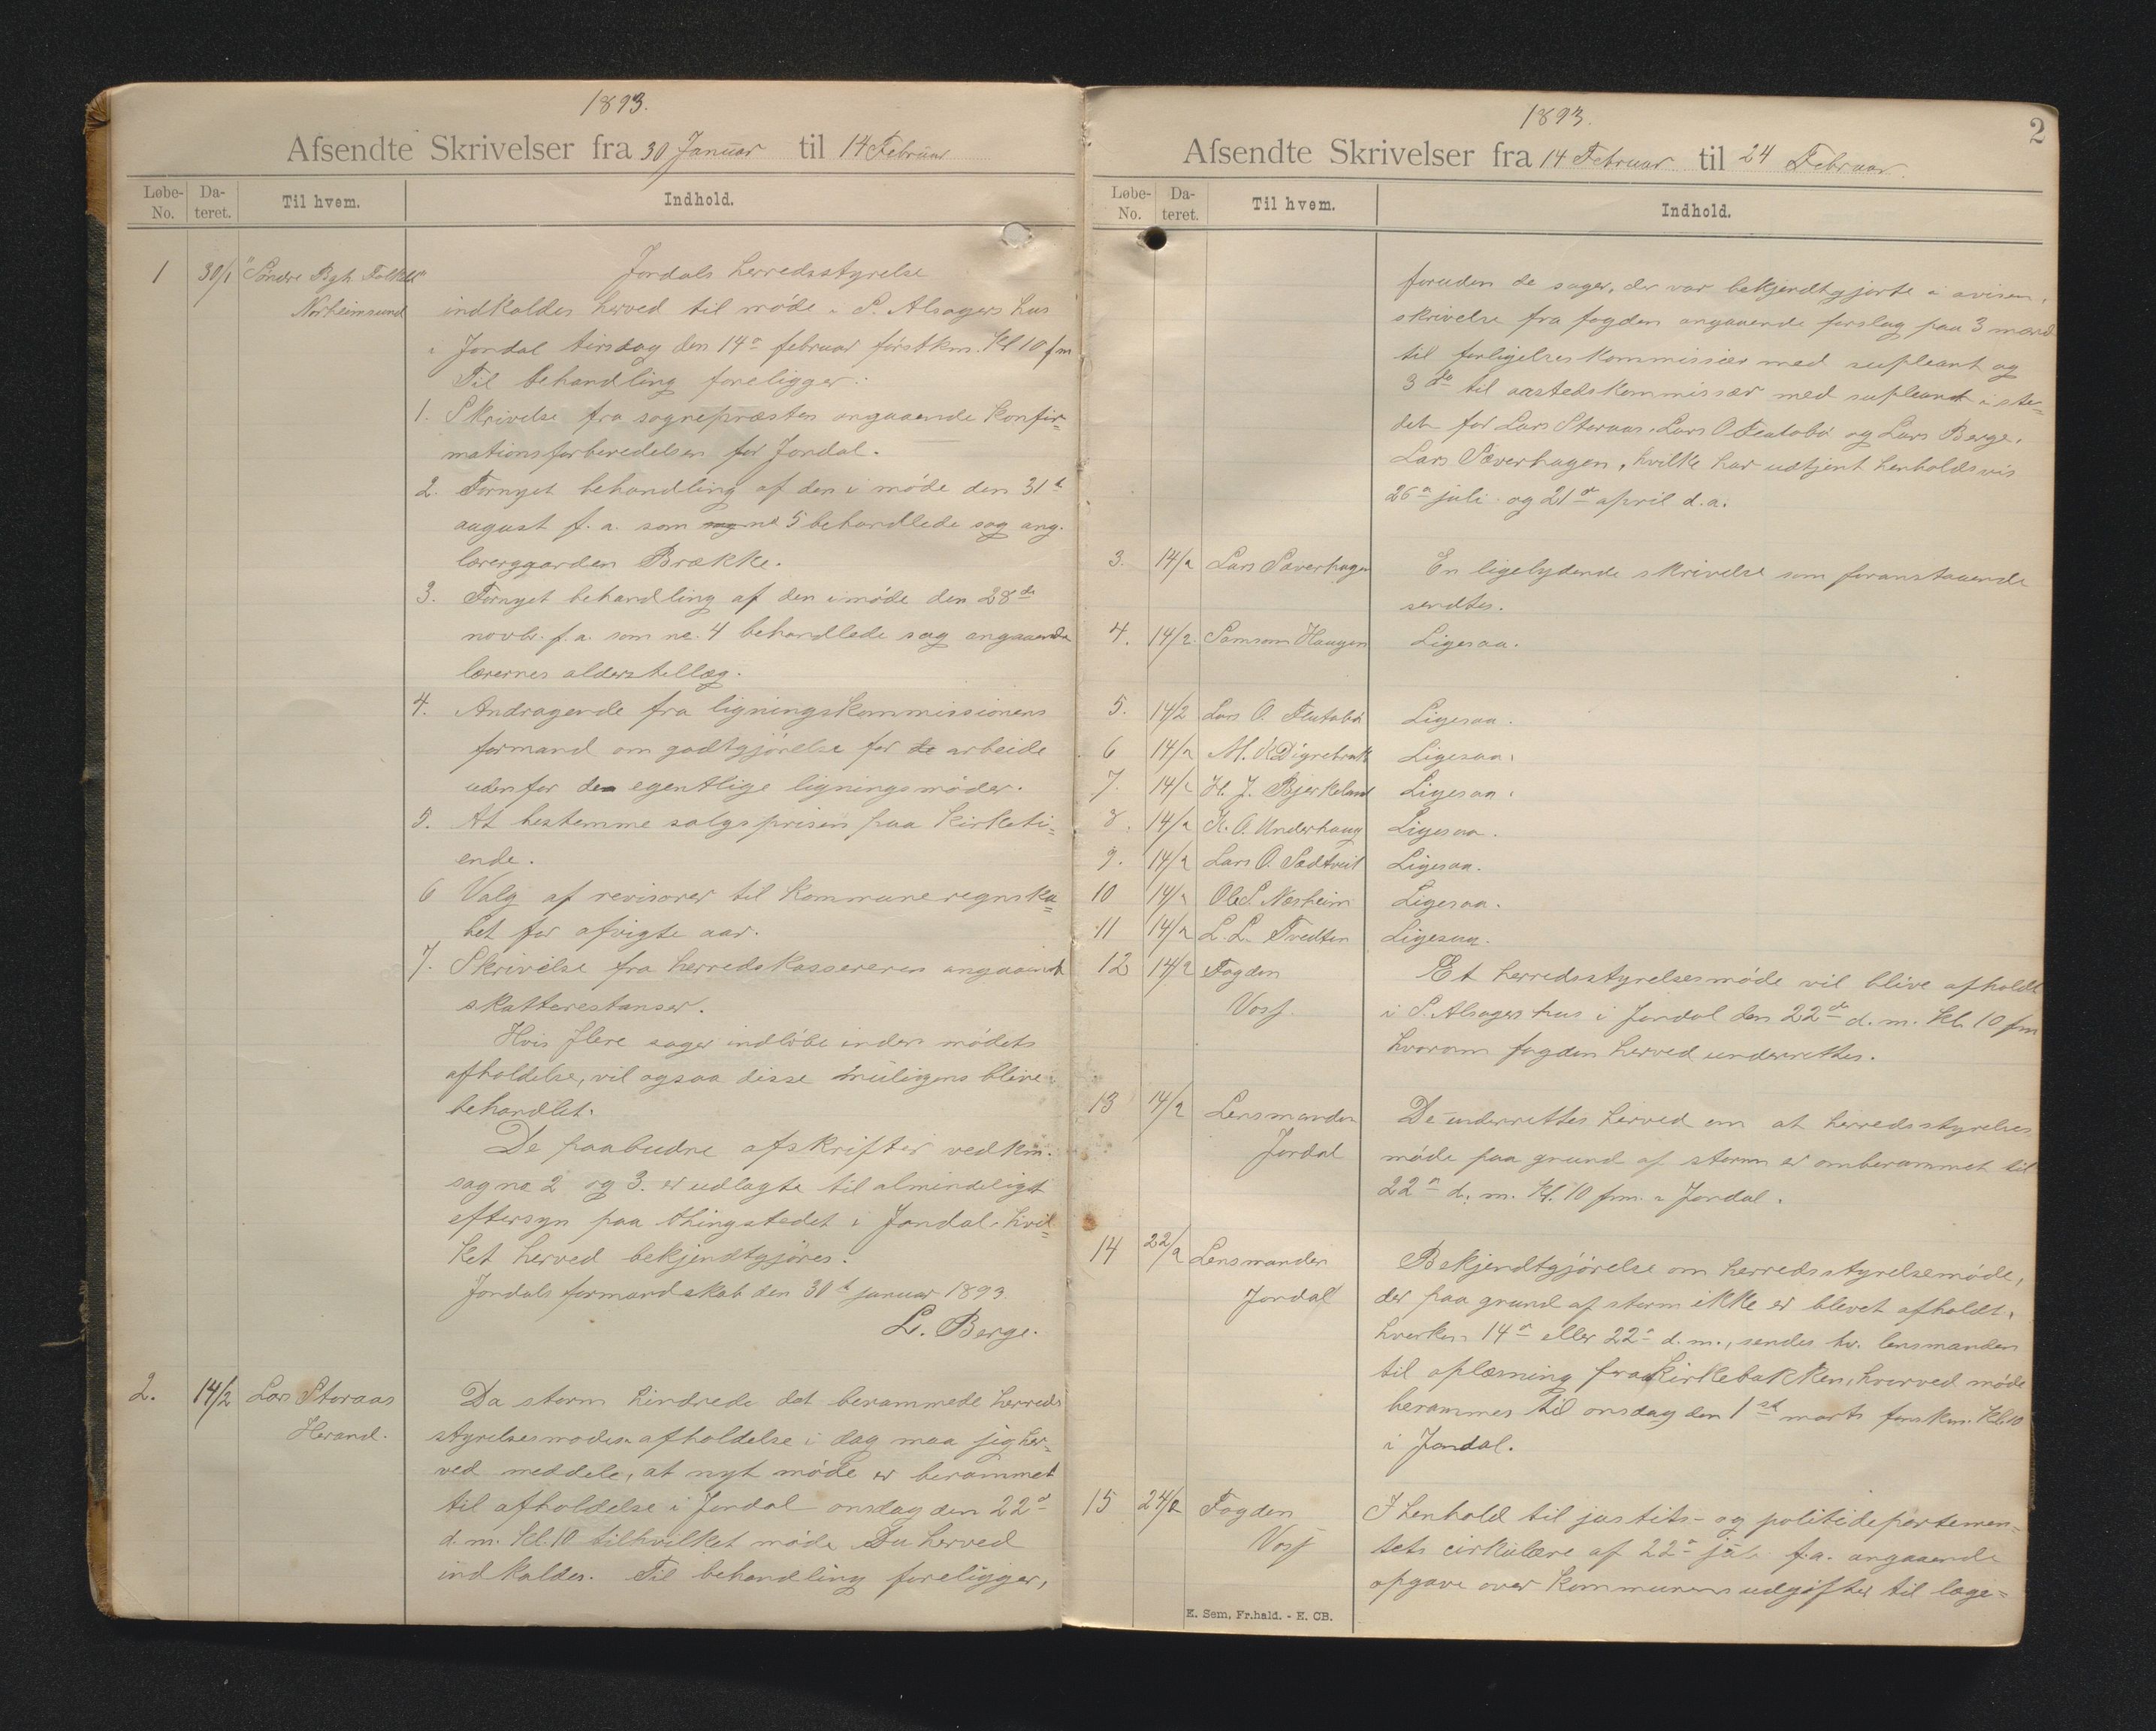 1893.
Afsendte Skrivelser fra 30 Januar til 14 Februar
Løbe-No. Da-teret. Til hvem. Indhold.
1 30/1 "Söndre Bgh. Folkebl"
Norheimsund
Jondals herredsstyrelse
indkaldes herved til möde i S. Alsagers hus
i Jondal tirsdag den 14de februar förstkm. Kl 10 fm
Til behandling foreligger:
1. Skrivelse fra sognepræsten angaaende Konfir=
mationsforberedelsen for Jondal.
2. Fornyet behandling af den i möde den 31t
august f. a. som no 5 behandlede sag ang.
lærergaarden Brække.
3. Fornyet behandling af den i möde den 28de
novbr. f. a. som no. 4 behandlede sag angaaende
lærernes alderstillæg.
4. Andragende fra ligningskommissionens
formand om godtgjörelse for arbeide
udenfor de egentlige ligningsmöder.
5. At bestemme salgsprisen paa Kirketi=
ende.
6 Valg af revisorer til Kommuneregnska=
bet for afvigte aar.
7. Skrivelse fra herredskassereren angaaende
skatterestanser.
Hvis flere sager indlöbe inden mödets
afholdelse, vil ogsaa disse muligens blive
behandlet.
De paabudne afskrifter vedkm.
sag no 2 og 3. er udlagte til almindeligt
eftersyn paa thingstedet i Jondal, hvil=
ket herved bekjendtgjöres.
Jondals formandskab den 30t januar 1893.
L. Berge.
2. 14/2 Lars Storaas
Herand.
Da storm hindrede det berammede herreds
styrelsesmödes afholdelse i dag maa jeg her=
ved meddele, at nyt möde er berammet
til afholdelse i Jondal onsdag den 22d
d. m. Kl. 10 til hvilket möde Du herved
indkaldes. Til behandling foreligger,
1893.
2
Afsendte Skrivelser fra 14 Februar til 24 Februar.
Løbe-No. Da-teret. Til hvem. Indhold.
foruden de sager, der var bekjendtgjorte i avisen,
skrivelse fra fogden angaaende forslag paa 3 mænd
til forligelseskommissær med supleant og
3 do til aastedskommissær med supleant i ste=
det for Lars Storaas, Lars O Flutabö og Lars Berge,
Lars Sæverhagen, hvilke har udtjent henholdsvis
26de juli og 21de april d. a.
3. 14/2 Lars Sæverhagen En ligelydende skrivelse som foranstaaende
sendtes.
4. 14/2 Samson Haugen Ligesaa.
5. 14/2 Lars O. Flutabö Ligesaa.
6 14/2 M. K. Digrebrekk Ligesaa.
7. 14/2 H. J. Bjerkeland Ligesaa.
8. 14/2 K. O. Underhaug Ligesaa.
9. 14/2 Lars O. Sædtveit Ligesaa.
10 14/2 Ole S. Næsheim Ligesaa.
11 14/2 L. L. Tvedten Ligesaa.
12 14/2 Fogden
Voss.
Et herredsstyrelsesmöde vil blive afholdt
i S. Alsagers hus i Jondal den 22de d. m. kl. 10 fm
hvorom fogden herved underrettes.
13 14/2 Lensmanden
Jondal
De underrettes herved om at herredsstyrelses
möde paa grund af storm er omberammet til
22de d. m. Kl. 10 fm. i Jondal.
14 22/2 Lensmanden
Jondal
Bekjendtgjörelse om herredsstyrelsemöde,
der paa grund af storm ikke er blevet afholdt,
hverken 14de eller 22de d. m., sendes hr. lensmanden
til oplæsning fra Kirkebakken, hvorved möde
berammes til onsdag den 1st marts förstkm. Kl. 10
i Jondal.
15 24/2 Fogden
Voss
I henhold til justits- og politidepartemen=
tets cirkulære af 22de juli f. a. angaaende
opgave over Kommunens udgifter til læge=
E. Sem, Fr.hald. - E. CB.